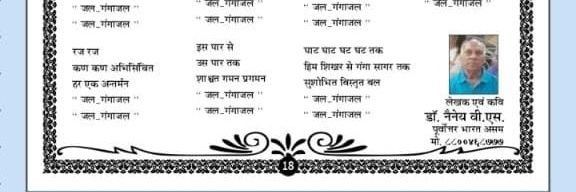 " जल_गंगाजल "
" जल_गंगाजल "
रज रज
कण कण अभिसिंचित
हर एक अन्तर्मन
" जल_गंगाजल "
" जल_गंगाजल "
" जल_गंगाजल "
" जल_गंगाजल "
इस पार से
उस पार तक
शाश्वत गमन प्रगमन
" जल_गंगाजल "
" जल_गंगाजल "
" जल_गंगाजल "
" जल_गंगाजल "
घाट घाट घट घट तक
हिम शिखर से गंगा सागर तक
सुशोभित विस्तृत थल
" जल_गंगाजल "
" जल_गंगाजल "
" जल_गंगाजल "
लेखक एवं कवि
डॉ. नैनेय वी.एस.
पूर्वोत्तर भारत असम
मो.
18